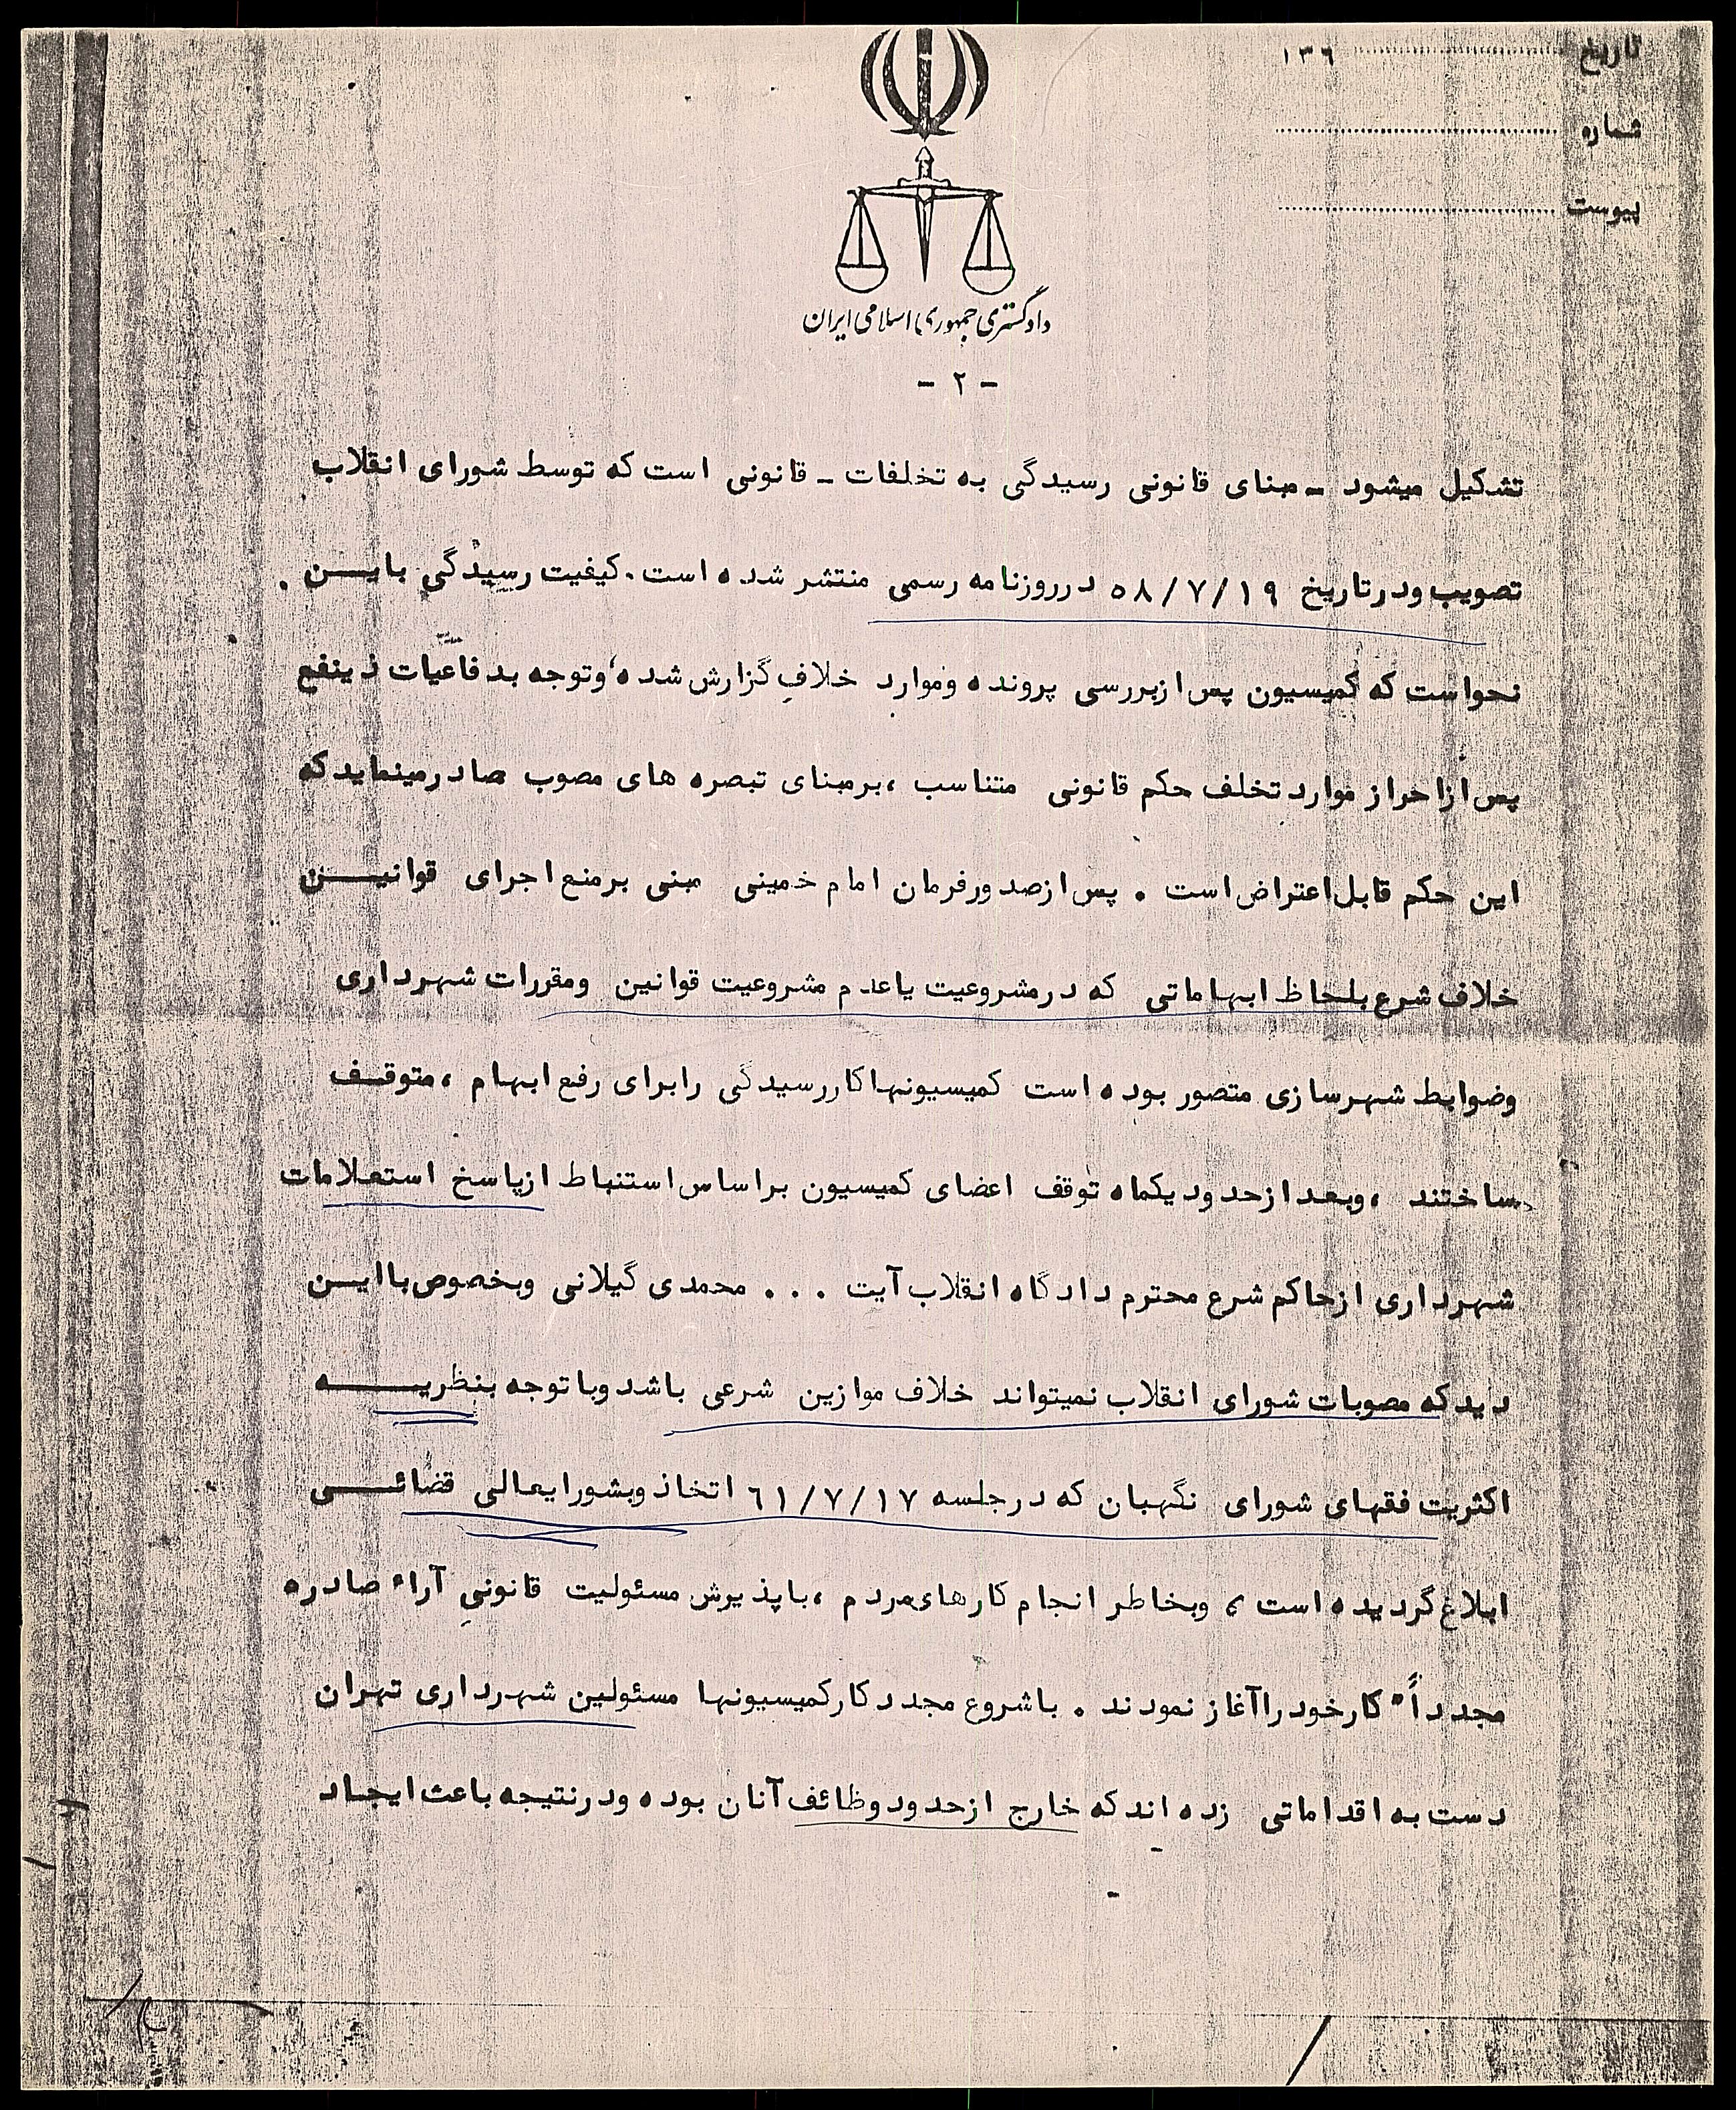 تاریخ ........................ ۱۳۶
شماره ........................
پیوست ........................
دادگستری جمهوری اسلامی ایران
- ۲ -
تشکیل میشود - مبنای قانونی رسیدگی به تخلفات - قانونی است که توسط شورای انقلاب
تصویب ودرتاریخ ۵۸/۷/۱۹ درروزنامه رسمی منتشر شده است. کیفیت رسیدگی باین .
نحواست که کمیسیون پس ازبررسی پرونده وموارد خلاف گزارش شده، وتوجه بدفاعیات ذینفع
پس ازاحراز موارد تخلف حکم قانونی متناسب ، برمبنای تبصره های مصوب صادرمینماید که
این حکم قابل اعتراض است . پس ازصدورفرمان امام خمینی مبنی برمنع اجرای قوانین
خلاف شرع بلحاظ ابهاماتی که درمشروعیت یاعدم مشروعیت قوانین ومقررات شهرداری
وضوابط شهرسازی متصور بوده است کمیسیونهاکاررسیدگی رابرای رفع ابهام ، متوقف
ساختند ، وبعد ازحدود یکماه توقف اعضای کمیسیون براساس استنباط ازپاسخ استعلامات
شهرداری ازحاکم شرع محترم دادگاه انقلاب آیت ... محمدی گیلانی وبخصوص باایـن
دید که مصوبات شورای انقلاب نمیتواند خلاف موازین شرعی باشد وباتوجه بنظریـه
اکثریت فقهای شورای نگهبان که درجلسه ۶۱/۷/۱۷ اتخاذ وبشورایعالی قضائـی
ابلاغ گردیده است ، وبخاطر انجام کارهای مردم ، باپذیرش مسئولیت قانونی آراء صادره
مجدداً کارخود راآغاز نمودند . باشروع مجدد کارکمیسیونها مسئولین شهرداری تهران
دست به اقداماتی زده اند که خارج ازحدود وظائف آنان بوده ودرنتیجه باعث ایجاد